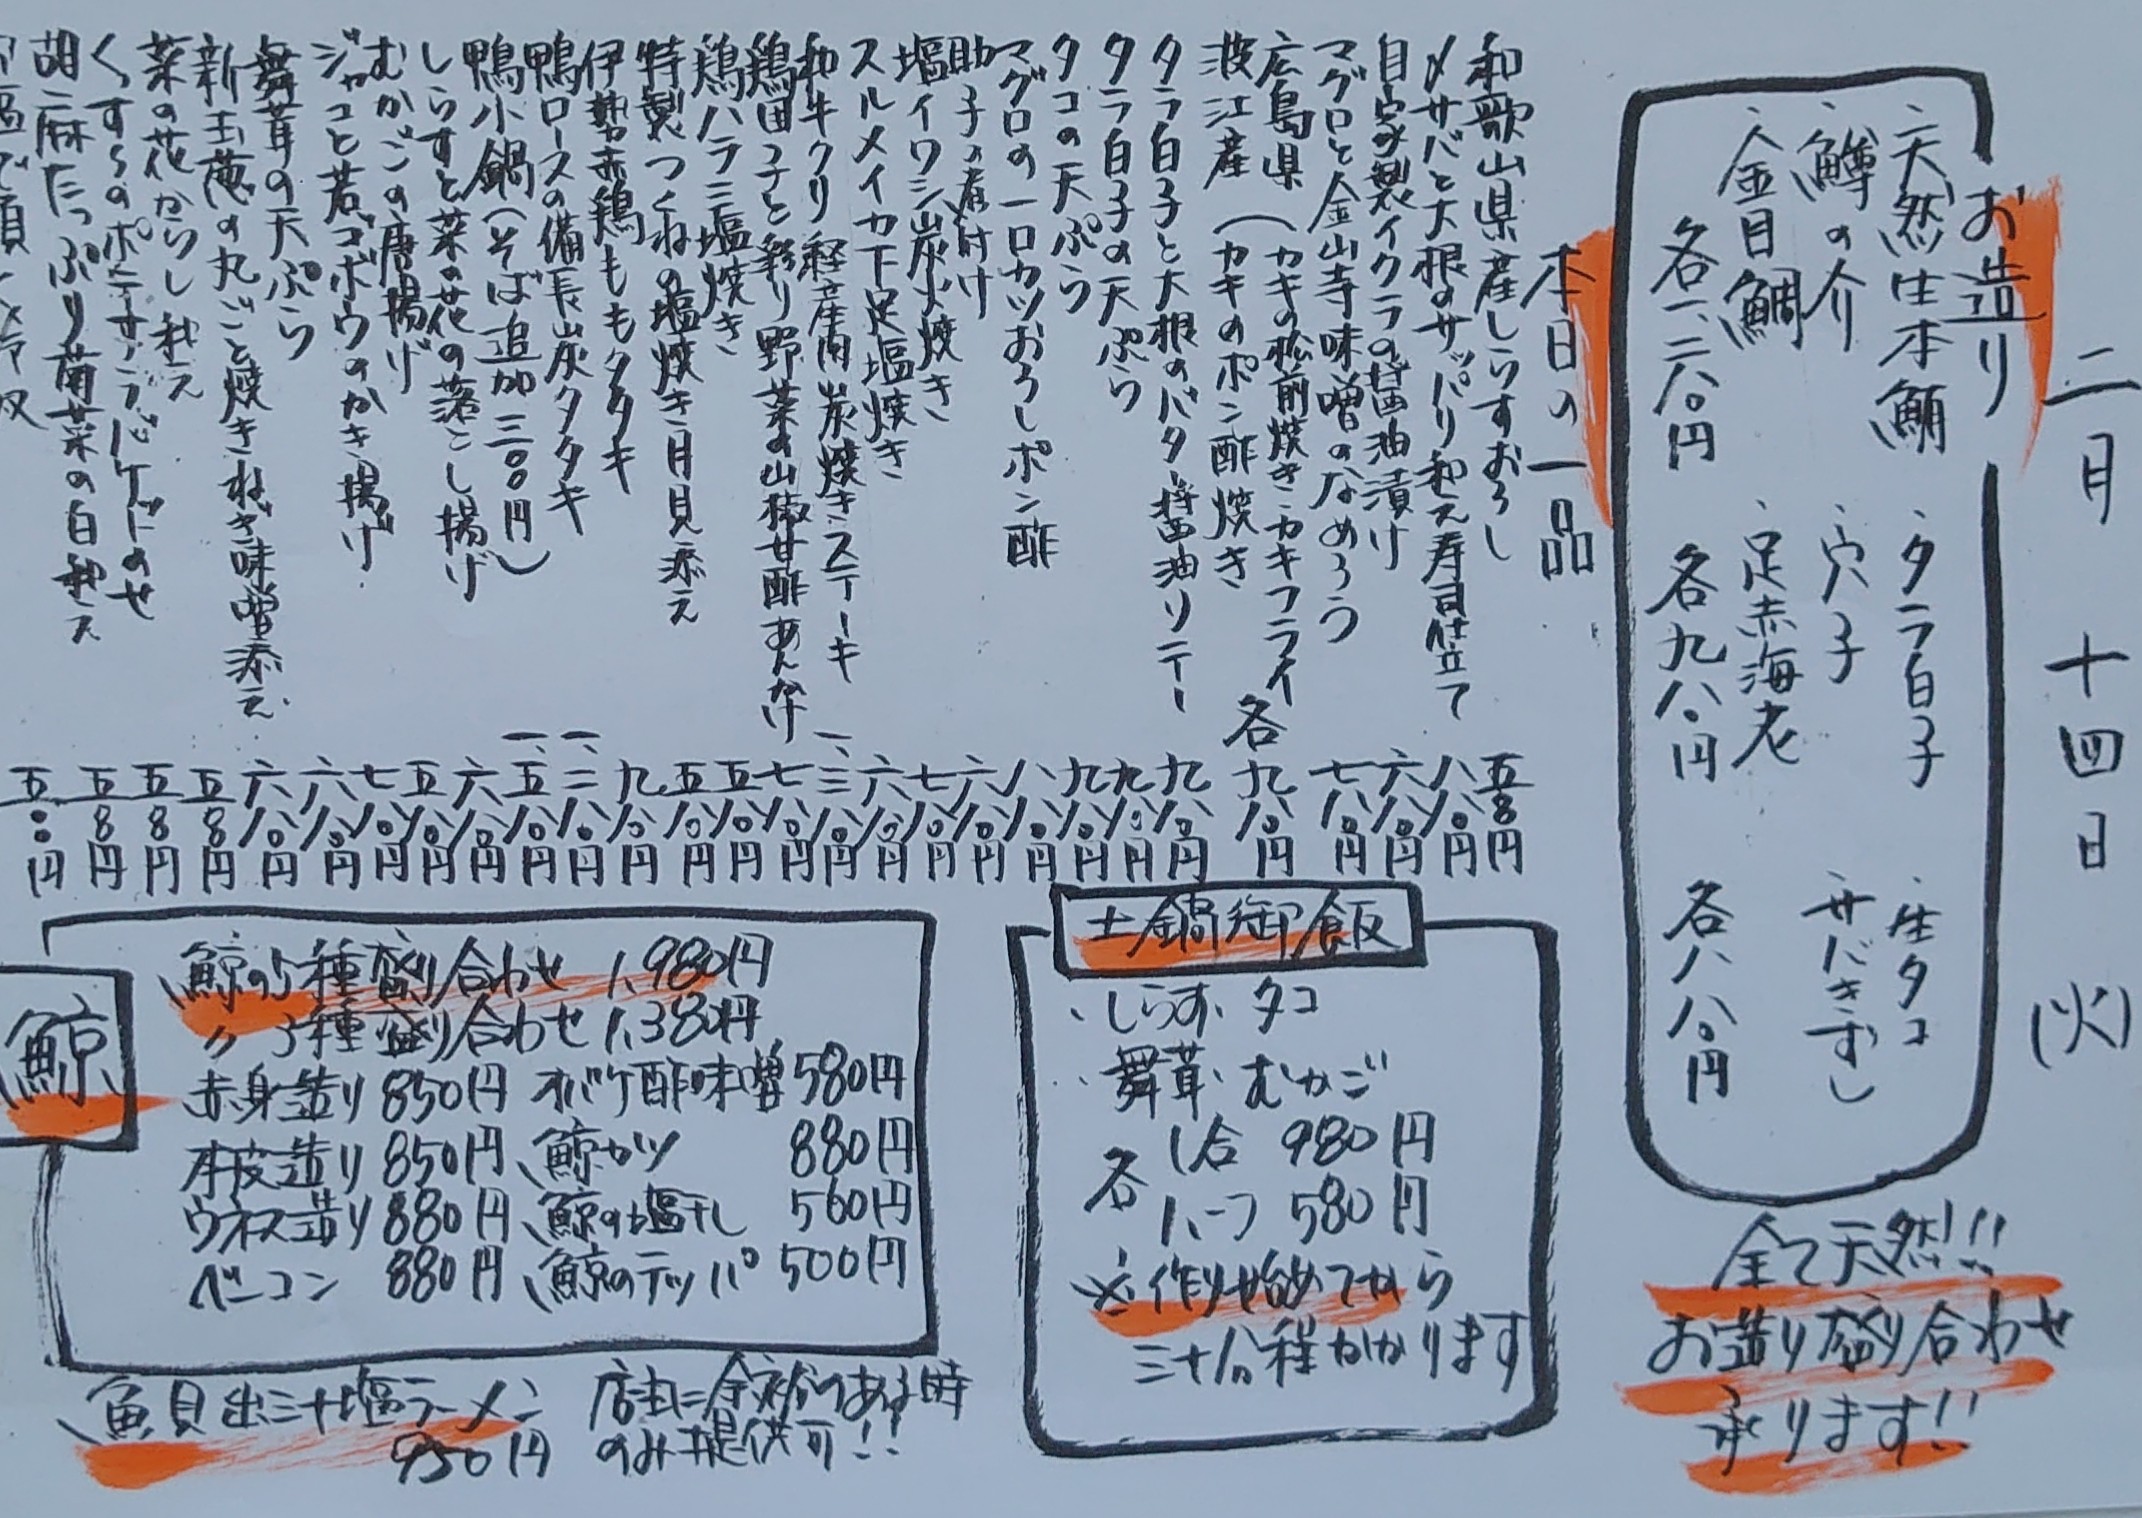 二月十四日(火)
お造り
・天然生本鮪
・鱒の介
・金目鯛
各一、二八〇円
・タラ白子
・穴子
・足赤海老
各九八〇円
・生タコ
・サバきずし
各八八〇円
全て天然!!
お造り盛り合わせ
承ります!!
本日の一品
和歌山県産しらすおろし 五八〇円
〆サバと大根のサッパリ和え寿司仕立て 八八〇円
自家製イクラの醤油漬け 六八〇円
マグロと金山寺味噌のなめろう 七八〇円
広島県(カキの松前焼き・カキフライ
波江産(カキのポン酢焼き 各九八〇円
タラ白子と大根のバター醤油ソテー 九八〇円
タラ白子の天ぷら 九八〇円
タコの天ぷら 九八〇円
マグロの一口カツおろしポン酢 八八〇円
助子の煮付け 六八〇円
塩イワシ炭火焼き 七八〇円
スルメイカ下足塩焼き 六八〇円
和牛クリ 経産肉炭焼きステーキ 一、三八〇円
鶏団子と彩り野菜の山椒甘酢あんかけ 七八〇円
鶏ハラミ塩焼き 五八〇円
特製つくねの塩焼き月見添え 五八〇円
伊勢赤鶏ももタタキ 九八〇円
鴨ロースの備長炭タタキ 一、二八〇円
鴨小鍋(そば追加三〇〇円) 一、五八〇円
しらすと菜の花の落とし揚げ 六八〇円
むかごの唐揚げ 五八〇円
ジャコと若ゴボウのかき揚げ 七八〇円
舞茸の天ぷら 六八〇円
新玉葱の丸ごと焼きねぎ味噌添え 六八〇円
菜の花からし和え 五八〇円
くずし のポテサラ バケットのせ 五八〇円
胡麻たっぷり菊菜の白和え 五八〇円
土鍋御飯
・しらす・タコ
・舞茸・むかご
各 1合 980円
ハーフ 580円
※作り始めてから
三十分程かかります
鯨
鯨の5種盛り合わせ 1,980円
〃 3種盛り合わせ 1,380円
赤身造り 850円 オバケ酢味噌 580円
本皮造り 850円 鯨カツ 880円
ウネス造り 880円 鯨の塩干し 560円
ベーコン 880円 鯨のテッパ 500円
魚貝出汁塩ラーメン 950円
店主に余裕のある時
のみ提供可!!